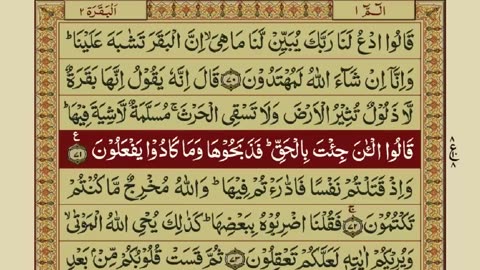 الٓمّٓ ١
اَلْبَقَرَة ٢
قَالُوا ادْعُ لَنَا رَبَّكَ يُبَيِّنْ لَّنَا مَا هِىَ ۙ اِنَّ الْبَقَرَ تَشٰبَهَ عَلَيْنَا ؕ
وَاِنَّاۤ اِنْ شَآءَ اللّٰهُ لَمُهْتَدُوْنَ ﴿۷۰﴾ قَالَ اِنَّهٗ يَقُوْلُ اِنَّهَا بَقَرَةٌ
لَّا ذَلُوْلٌ تُثِيْرُ الْاَرْضَ وَلَا تَسْقِى الْحَرْثَ ۚ مُسَلَّمَةٌ لَّا شِيَةَ فِيْهَا ؕ
قَالُوا الْـٰٔنَ جِئْتَ بِالْحَقِّ ؕ فَذَبَحُوْهَا وَمَا كَادُوْا يَفْعَلُوْنَ ﴿۷۱﴾ ع
وَاِذْ قَتَلْتُمْ نَفْسًا فَادّٰرَءْتُمْ فِيْهَا ؕ وَاللّٰهُ مُخْرِجٌ مَّا كُنْتُمْ
تَكْتُمُوْنَ ۚ ﴿۷۲﴾ فَقُلْنَا اضْرِبُوْهُ بِبَعْضِهَا ؕ كَذٰلِكَ يُحْىِ اللّٰهُ الْمَوْتٰى ۙ
وَيُرِيْكُمْ اٰيٰتِهٖ لَعَلَّكُمْ تَعْقِلُوْنَ ﴿۷۳﴾ ثُمَّ قَسَتْ قُلُوْبُكُمْ مِّنْۢ بَعْدِ